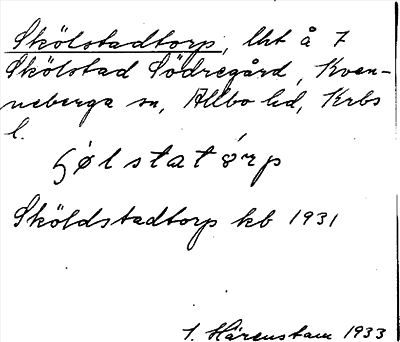 Skölstadtorp, lht å 7
Skölstad Södregård, Kven-
neberga sn, Allbo hd, Krbs
l.
ʃølstatørp
Sköldstadtorp kb 1931
I. Härenstam 1933